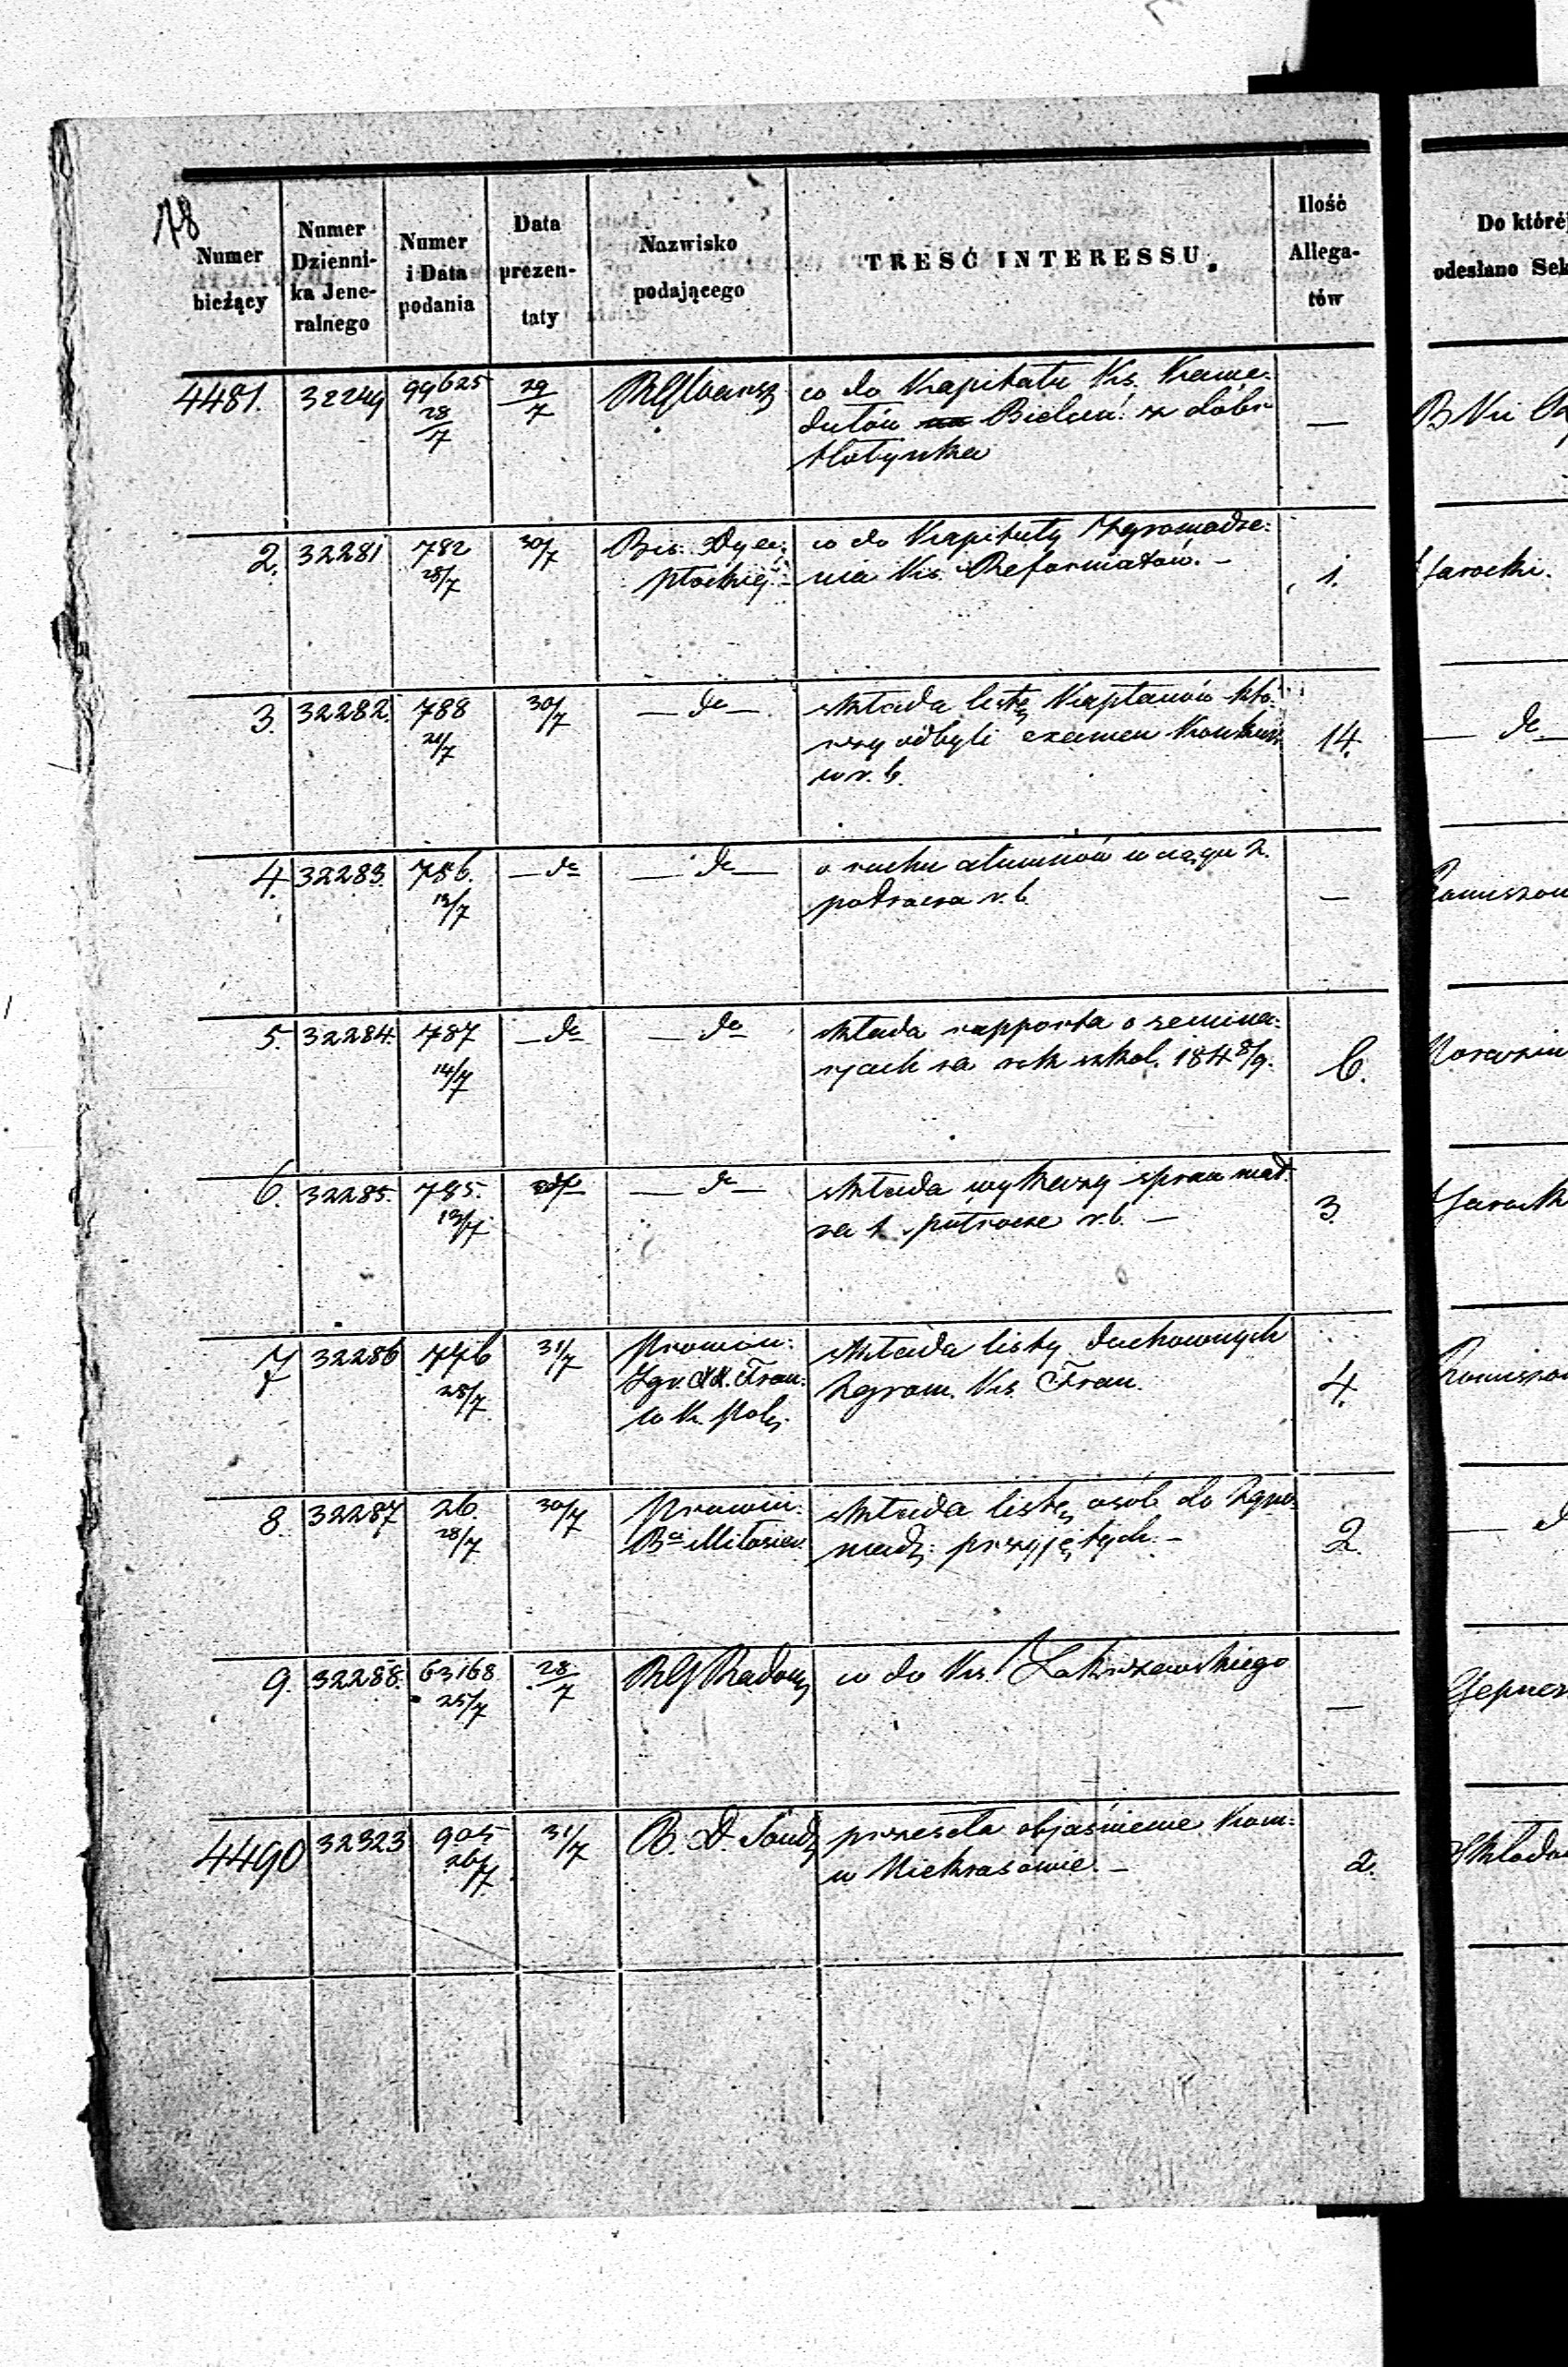 78
Numer bieżący
Numer Dzienni-ka Jene-ralnego
Numer i Data podania
Data prezen-taty
Nazwisko podającego
TRESĆ INTERESSU.
Ilość Allega-tów
Do któréj
odesłano Sek
4481. 32249 99625 28/7 29/7 RGWarsz co do Kapitału Ks. Kame:
dułów Bielań: z dóbr
—
B
2. 32281 782 28/7 30/7 Bis: Dyec: płockiéj co do Kapituły Zgromadze:
nia Ks. Reformatów. –
1.
Jarocki.
3. 32282. 788 21/7 30/7 — do — składa listę Kapłanów któ:
rzy odbyli examen Konkurs
w r. b.
14.
— do
4. 32283. 786. 13/7 — do — do — o ruchu alumnów w ciągu 2.
półrocza r. b.
—
5. 32284. 787 14/7 — do — do składa rapporta o semina:
ryach za rok szkol. 1848/9.
6.
6. 32285. 785. 13/7 do — do — składa wykazy spraw mał.
za 1. półrocze r. b. —
3.
Jarock
7 32286 776 28/7 31/7 Prowin:
Zgr. XX. Fran:
w K. Pols. składa listy duchownych
Zgrom. Ks. Fran.
4.
8. 32287 26. 28/7 30/7 Prowin:
Bci Miłosier. składa listę osób do Zgro:
madz: przyjętych. –
2.
9. 32288. 63168 25/7 28/7 RG Radom co do Ks. Zakrzewskiego
—
4490 32323 905 26/7 31/7 B. D. Sand przeseła objaśnienie Kom:
w Niekrasowie. –
2.